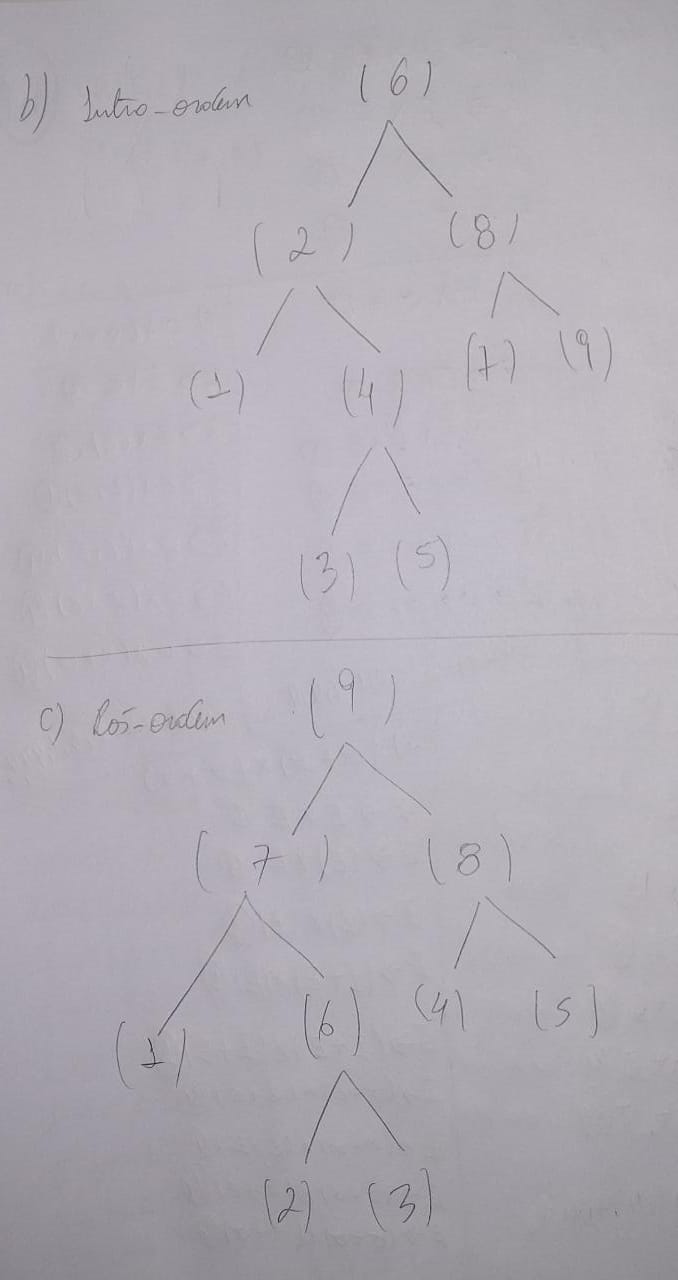 b) Intro-ordem (6)
(2) (8)
(1) (4) (7) (9)
(3) (5)
c) Pos-ordem (9)
(7) (8)
(1) (6) (4) (5)
(2) (3)